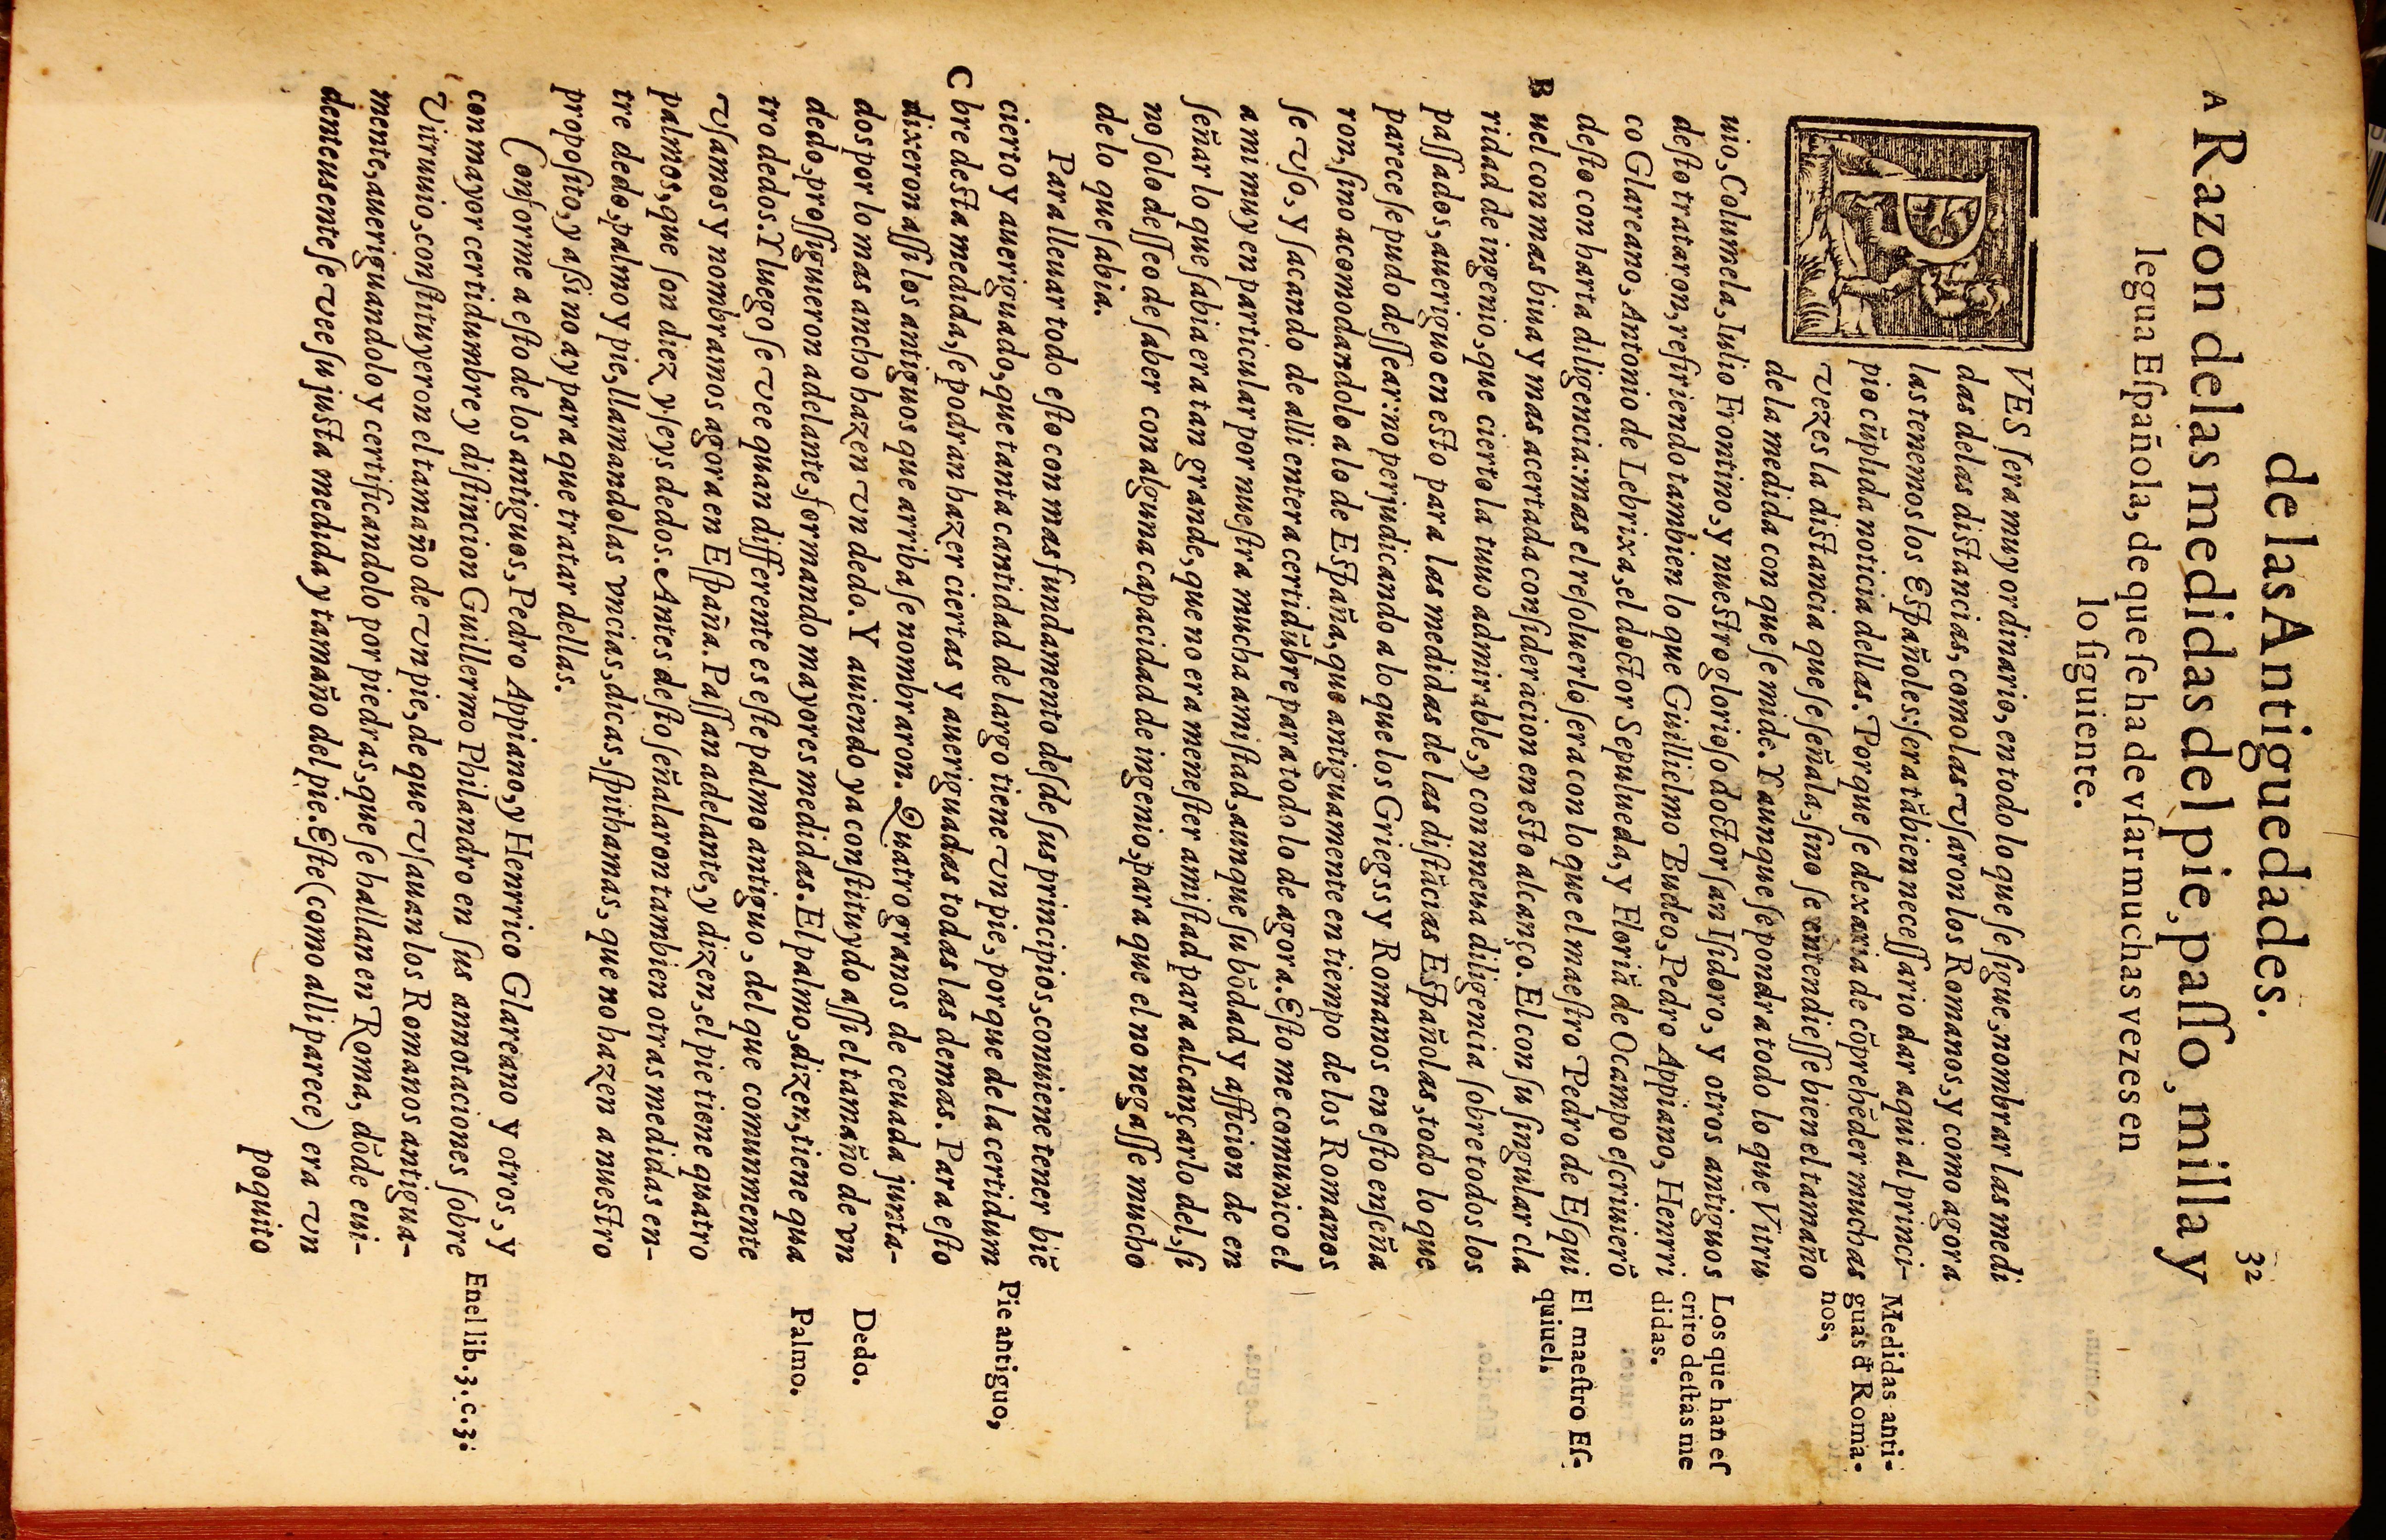 de las Antiguedades.
32
A Razon de las medidas del pie, paſſo, milla y
legua Eſpañola, de que ſe ha de vſar muchas vezes en
lo ſiguiente.
PVES ſera muy ordinario, en todo lo que ſe ſigue, nombrar las medi
das de las diſtancias, como las vſaron los Romanos, y como agora
las tenemos los Eſpañoles: ſera tãbien neceſſario dar aqui al princi-
pio cũplida noticia dellas. Porque ſe dexaria de cõprehẽder muchas
vezes la diſtancia que ſe ſeñala, ſino ſe entendieſſe bien el tamaño
de la medida con que ſe mide. Y aunque ſe pondra todo lo que Vitru
uio, Columela, Iulio Frontino, y nueſtro glorioſo doctor ſan Iſidoro, y otros antiguos
deſto trataron, refiriendo tambien lo que Guillielmo Budeo, Pedro Appiano, Henrri
co Glareano, Antonio de Lebrixa, el doctor Sepulueda, y Floriã de Ocampo eſcriuierõ
deſto con harta diligencia: mas el reſoluerlo ſera con lo que el maeſtro Pedro de Eſqui
B uel con mas biua y mas acertada conſideracion en eſto alcanço. El con ſu ſingular cla
ridad de ingenio, que cierto la tuuo admirable, y con nueua diligencia ſobre todos los
paſſados, aueriguo en eſto para las medidas de las diſtãcias Eſpañolas, todo lo que
parece ſe pudo deſſear: no perjudicando a lo que los Griegss y Romanos en eſto enſeña
ron, ſino acomodandolo a lo de Eſpaña, que antiguamente en tiempo de los Romanos
ſe vſo, y ſacando de alli entera certidũbre para todo lo de agora. Eſto me comunico el
a mi muy en particular por nueſtra mucha amiſtad, aunque ſu bõdad y afficion de en
ſeñar lo que ſabia era tan grande, que no era meneſter amiſtad para alcançarlo del, ſi
no ſolo deſſeo de ſaber con alguna capacidad de ingenio, para que el no negaſſe mucho
de lo que ſabia.
Para lleuar todo eſto con mas fundamento deſde ſus principios, conuiene tener biẽ
cierto y aueriguado, que tanta cantidad de largo tiene vn pie, porque de la certidum
C bre deſta medida, ſe podran hazer ciertas y aueriguadas todas las demas. Para eſto
dixeron aſſi los antiguos que arriba ſe nombraron. Quatro granos de ceuada junta-
dos por lo mas ancho hazen vn dedo. Y auiendo ya conſtituydo aſſi el tamaño de vn
dedo, proſſiguieron adelante, formando mayores medidas. El palmo, dizen, tiene qua
tro dedos. Y luego ſe vee quan differente es eſte palmo antiguo, del que comunmente
vſamos y nombramos agora en Eſpaña. Paſſan adelante, y dizen, el pie tiene quatro
palmos, que ſon diez y ſeys dedos. Antes deſto ſeñalaron tambien otras medidas en-
tre dedo, palmo y pie, llamandolas vncias, dicas, ſpithamas, que no hazen a nueſtro
propoſito, y aſsi no ay para que tratar dellas.
Conforme a eſto de los antiguos, Pedro Appiano, y Henrrico Glareano y otros, y
con mayor certidumbre y diſtincion Guillermo Philandro en ſus annotaciones ſobre
Vitruuio, conſtituyeron el tamaño de vn pie, de que vſauan los Romanos antigua-
mente, aueriguandolo y certificandolo por piedras, que ſe hallan en Roma, dõde eui-
dentemente ſe vee ſu juſta medida y tamaño del pie. Eſte (como alli parece) era vn
poquito
Medidas anti-
guas đ Roma-
nos,
Los que han eſ
crito deſtas me
didas.
El maeſtro Eſ-
quiuel.
Pie antiguo,
Dedo.
Palmo.
En el lib. 3. c. 3.